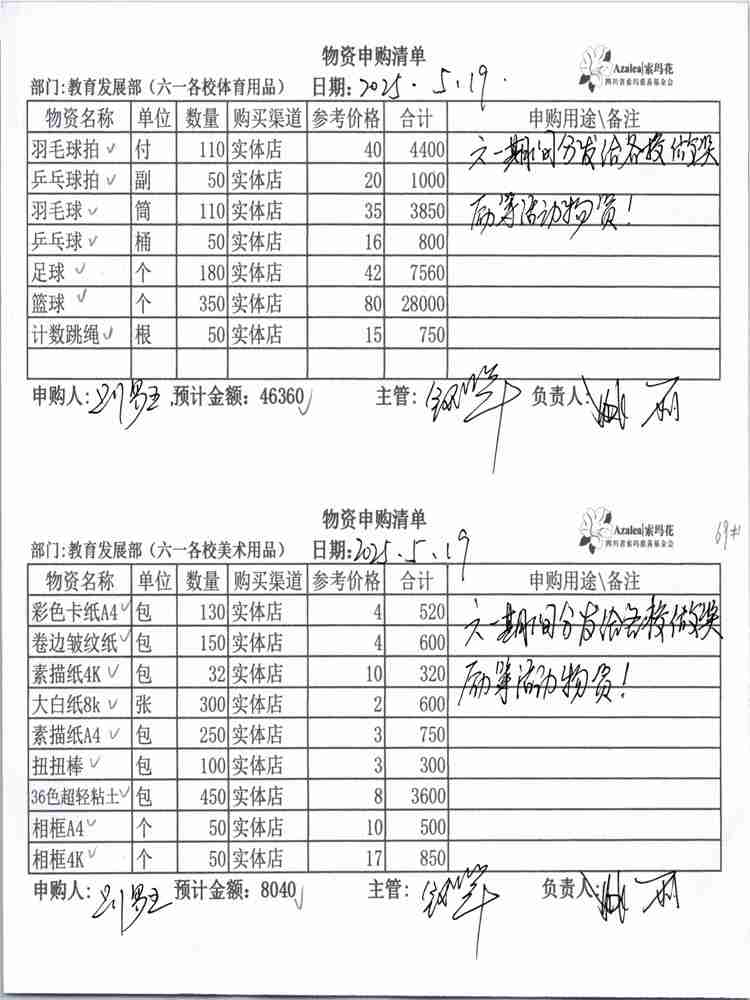 物资申购清单
Azalea|索玛花
四川省索玛慈善基金会
部门:教育发展部（六一各校体育用品） 日期:2025.5.19.
物资名称 单位 数量 购买渠道 参考价格 合计 申购用途\备注
羽毛球拍 ✓ 付 110 实体店 40 4400 六一期间分发给各校做奖
乒乓球拍 ✓ 副 50 实体店 20 1000
羽毛球 ✓ 筒 110 实体店 35 3850 励等活动物资!
乒乓球 ✓ 桶 50 实体店 16 800
足球 ✓ 个 180 实体店 42 7560
篮球 ✓ 个 350 实体店 80 28000
计数跳绳 ✓ 根 50 实体店 15 750
申购人: 预计金额: 46360 主管: 负责人:
物资申购清单
Azalea|索玛花
四川省索玛慈善基金会
69#
部门:教育发展部（六一各校美术用品） 日期:2025.5.19
物资名称 单位 数量 购买渠道 参考价格 合计 申购用途\备注
彩色卡纸A4 ✓ 包 130 实体店 4 520 六一期间分发给各校做奖
卷边皱纹纸 ✓ 包 150 实体店 4 600
素描纸4K ✓ 包 32 实体店 10 320 励等活动物资!
大白纸8k ✓ 张 300 实体店 2 600
素描纸A4 ✓ 包 250 实体店 3 750
扭扭棒 ✓ 包 100 实体店 3 300
36色超轻粘土 ✓ 包 450 实体店 8 3600
相框A4 ✓ 个 50 实体店 10 500
相框4K ✓ 个 50 实体店 17 850
申购人: 预计金额: 8040 主管: 负责人: